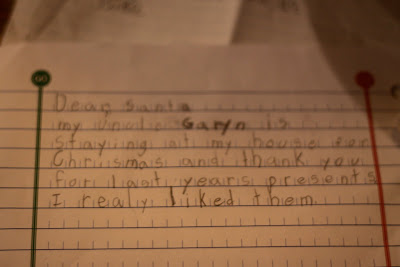 Dear santa
my uncle Garyn is
staying at my house for
Chrismas and thank you
for last years presents
I realy liked them